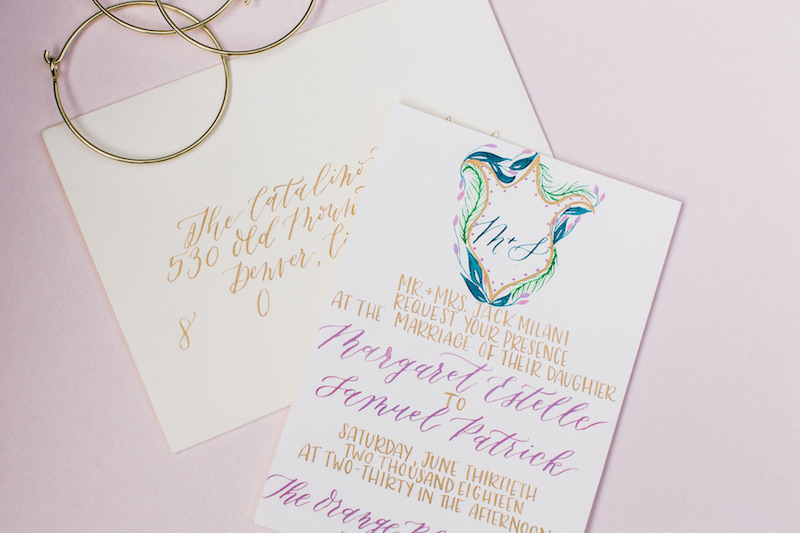 The
530 Old
Denver,
8 0
M + S
MR. + MRS. JACK MILANI
REQUEST YOUR PRESENCE
AT THE MARRIAGE OF THEIR DAUGHTER
Margaret Estelle
TO
Samuel Patrick
SATURDAY, JUNE THIRTIETH
TWO THOUSAND EIGHTEEN
AT TWO-THIRTY IN THE AFTERNOON
The Orange